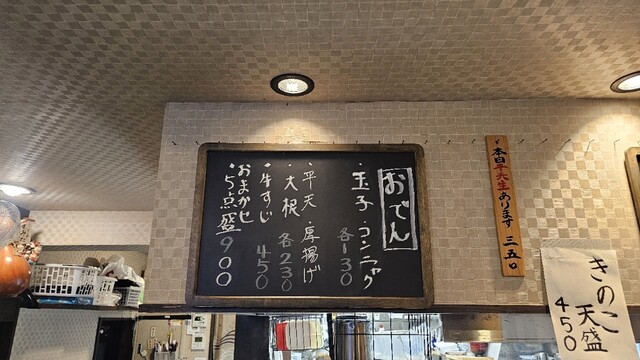 おでん
・玉子・コンニャク
各130
・平天・厚揚げ
・大根 各230
・牛すじ 450
・おまかせ
5点盛 900
本日半丈生あります 三五〇
きのこ
天盛
450